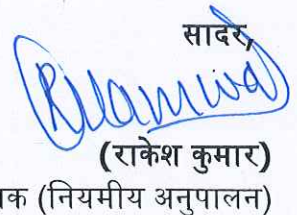 सादर,
(राकेश कुमार)
क (नियमीय अनुपालन)